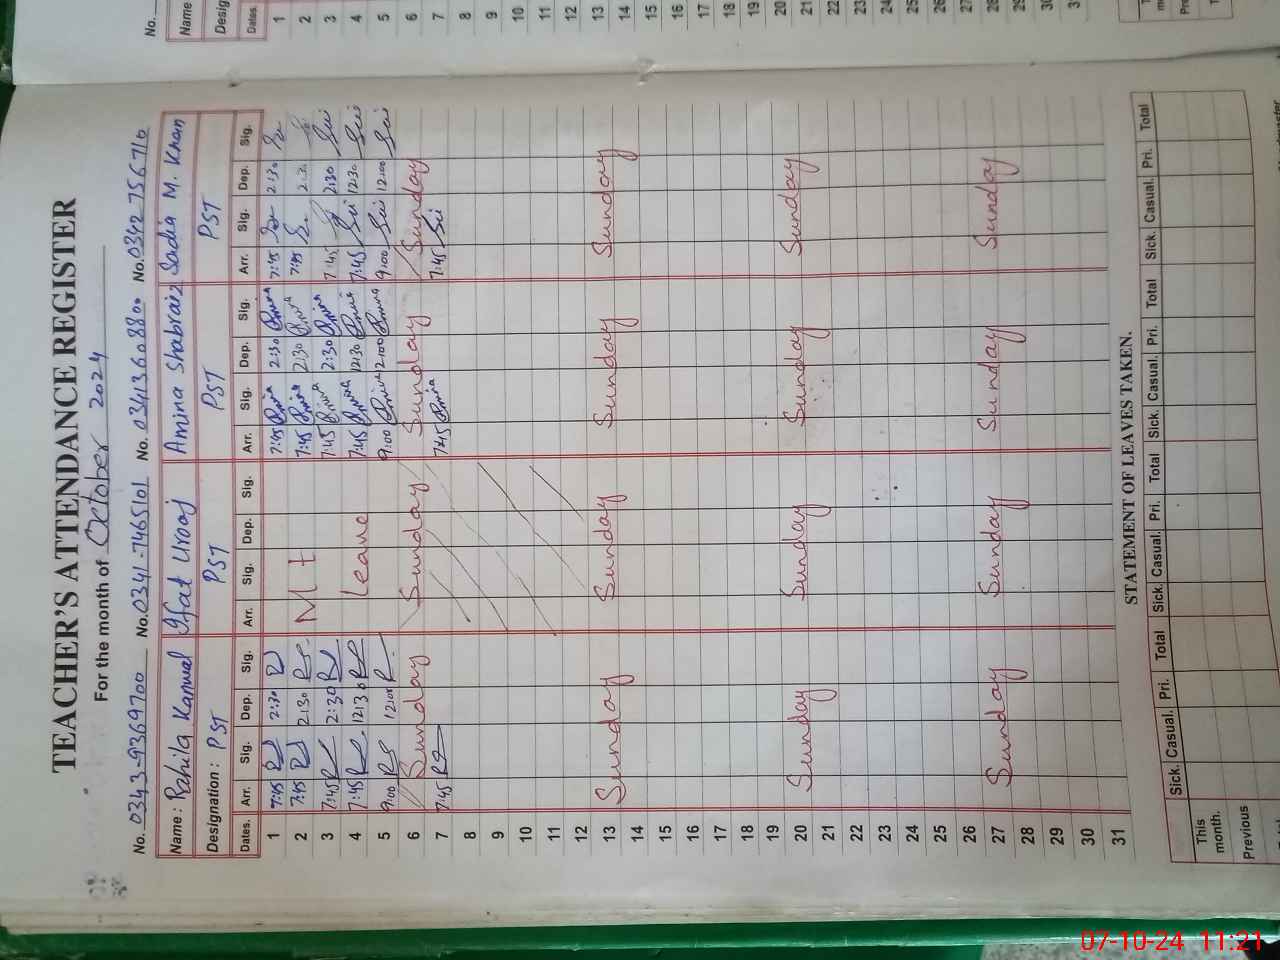 TEACHER'S ATTENDANCE REGISTER
For the month of October 2024
No. 0343-9369700 No. 0341-7465101 No. 03413608800 No. 0342 756710
Name: Rahila Kanwal Ifat Urooj Amina Shabraiz Sadia M. Khan
Designation: PST PST PST PST
Dates. Arr. Sig. Dep. Sig. Arr. Sig. Dep. Sig. Arr. Sig. Dep. Sig. Arr. Sig. Dep. Sig.
1 7:45 2:30 7:45 Amina 2:30 Amina 7:45 2:30
2 7:45 2:30 Mt 7:45 Amina 2:30 Amina 7:45 2:30
3 7:45 2:30 7:45 Amina 2:30 Amina 7:45 2:30
4 7:45 12:30 Leave 7:45 Amina 12:30 Amina 7:45 12:30
5 9:00 12:00 9:00 Amina 12:00 Amina 9:00 12:00
6 Sunday Sunday Sunday Sunday
7 7:45 7:45 Amina 7:45
8
9
10
11
12
13 Sunday Sunday Sunday Sunday
14
15
16
17
18
19
20 Sunday Sunday Sunday Sunday
21
22
23
24
25
26
27 Sunday Sunday Sunday Sunday
28
29
30
31
STATEMENT OF LEAVES TAKEN.
Sick. Casual. Pri. Total Sick. Casual. Pri. Total Sick. Casual. Pri. Total Sick. Casual. Pri. Total
This month.
Previous
No.
Name
Desig
Dates.
1
2
3
4
5
6
7
8
9
10
11
12
13
14
15
16
17
18
19
20
21
22
23
24
25
26
27
28
29
30
31
07-10-24 11:21